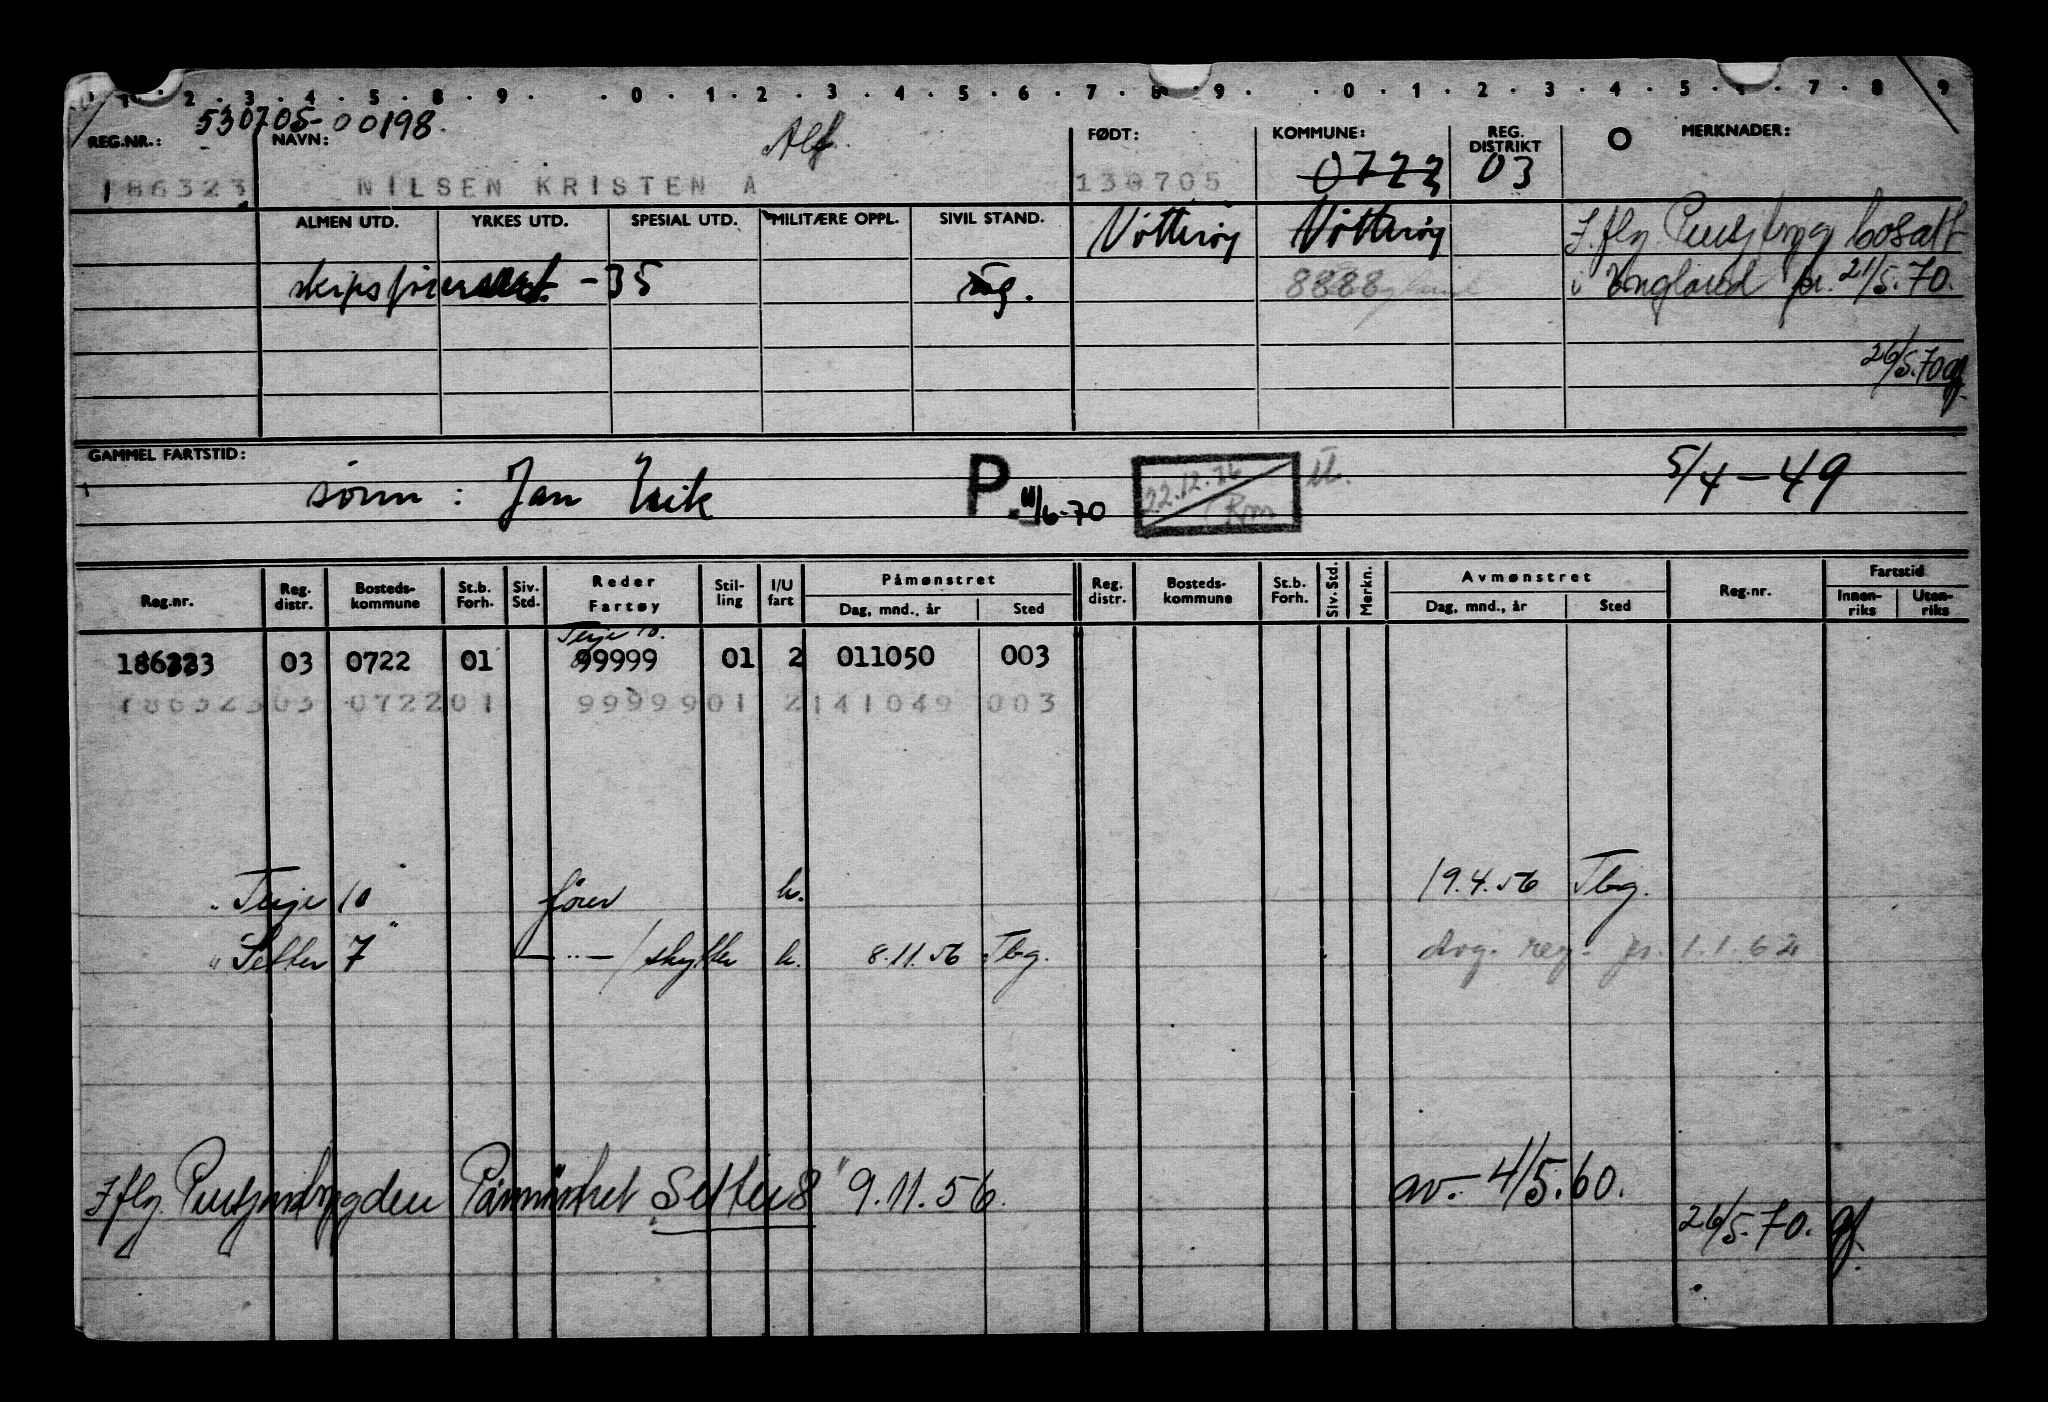 1 · 2 · 3 · 4 · 5 · 8 · 9 · · 0 · 1 · 2 · 3 · 4 · 5 · 6 · 7 · 8 · 9 · · 0 · 1 · 2 · 3 · 4 · 5 · · 7 · 8 · 9
530705-00198.
REG.NR.: NAVN: Alf. FØDT: KOMMUNE: REG. DISTRIKT O MERKNADER:
186323 NILSEN KRISTEN A 130705 0722 03
ALMEN UTD. YRKES UTD. SPESIAL UTD. MILITÆRE OPPL. SIVIL STAND. Nøtterøy Nøtterøy I. flg. bosatt
-35 ug. 8888 i England pr. 21/5.70.
26/5.70
GAMMEL FARTSTID: sønn: Jan Erik P 11/6-70 22.12.76 5/4-49
Reg.nr. Reg. distr. Bosteds-kommune St.b. Forh. Siv. Std. Reder Fartøy Stil-ling I/U fart Påmønstret Dag, mnd., år Sted Reg. distr. Bosteds-kommune St.b. Forh. Siv. Std. Merkn. Avmønstret Dag, mnd., år Sted Reg.nr. Fartstid Innen-riks Uten-riks
Terje 10.
186323 03 0722 01 99999 01 2 011050 003
186323 03 0722 01 99999 01 2 141049 003
"Terje 10" fører h. 19.4.56 Tbg.
"Setter 7" — " — / skytter h. 8.11.56 Tbg. Avg. reg. pr. 1.1.62
I flg. Påmønstret Setter 8" 9.11.56. av. - 4/5.60.
26/5.70.